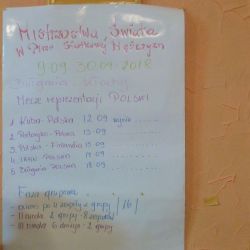 Mistrzostwa Świata
w Piłce Siatkowej Mężczyzn
9.09 - 30.09.2018
Bułgaria - Włochy
Mecze reprezentacji POLSKI
1 Kuba - Polska 12 09
2 Portoryko - Polska 13-09
3 Polska - Finlandia 15-09
4 IRAN Polska 17-09
5 Bułgaria Polska 18-09
Faza grupowa
po 4 zespoły z grupy /16/
- II runda 2 grupy - 8 zespołów
- III runda 6 drużyn - 2 grupy